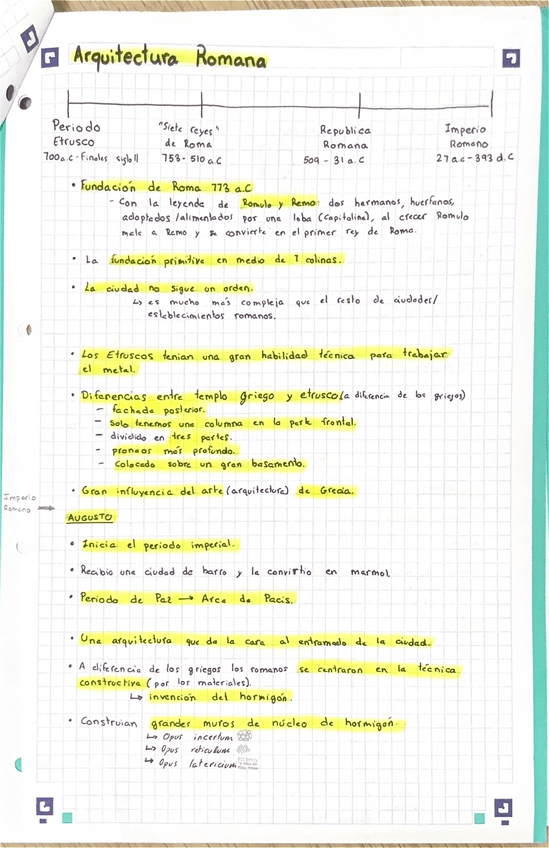 Arquitectura Romana
Periodo Etrusco
700 a.C - Finales siglo II
"Siete reyes" de Roma
753 - 510 a.C
Republica Romana
509 - 31 a.C
Imperio Romano
27 a.c - 393 d.C
• Fundación de Roma 773 a.C
- Con la leyenda de Romulo y Remo: dos hermanos, huerfanos,
adoptados/alimentados por una loba (capitolina), al crecer Romulo
mata a Remo y se convierte en el primer rey de Roma.
• La fundación primitiva en medio de 7 colinas.
• La ciudad no sigue un orden.
↳ es mucho más compleja que el resto de ciudades/
establecimientos romanos.
• Los Etruscos tenian una gran habilidad técnica para trabajar
el metal.
• Diferencias entre templo griego y etrusco (a diferencia de los griegos)
- fachada posterior.
- solo tenemos una columna en la parte frontal.
- dividido en tres partes.
- pronaos más profundo.
- Colocado sobre un gran basamento.
• Gran influyencia del arte (arquitectura) de Grecia.
Imperio
Romano →
AUGUSTO
• Inicia el periodo imperial.
• Recibio una ciudad de barro y la convirtio en marmol
• Periodo de Paz → Arca de Pacis.
• Una arquitectura que da la cara al entramado de la ciudad.
• A diferencia de los griegos los romanos se centraron en la técnica
constructiva (por los materiales).
↳ invención del hormigón.
• Construian grandes muros de núcleo de hormigón.
↳ Opus incertum
↳ Opus reticulum
↳ Opus latericium